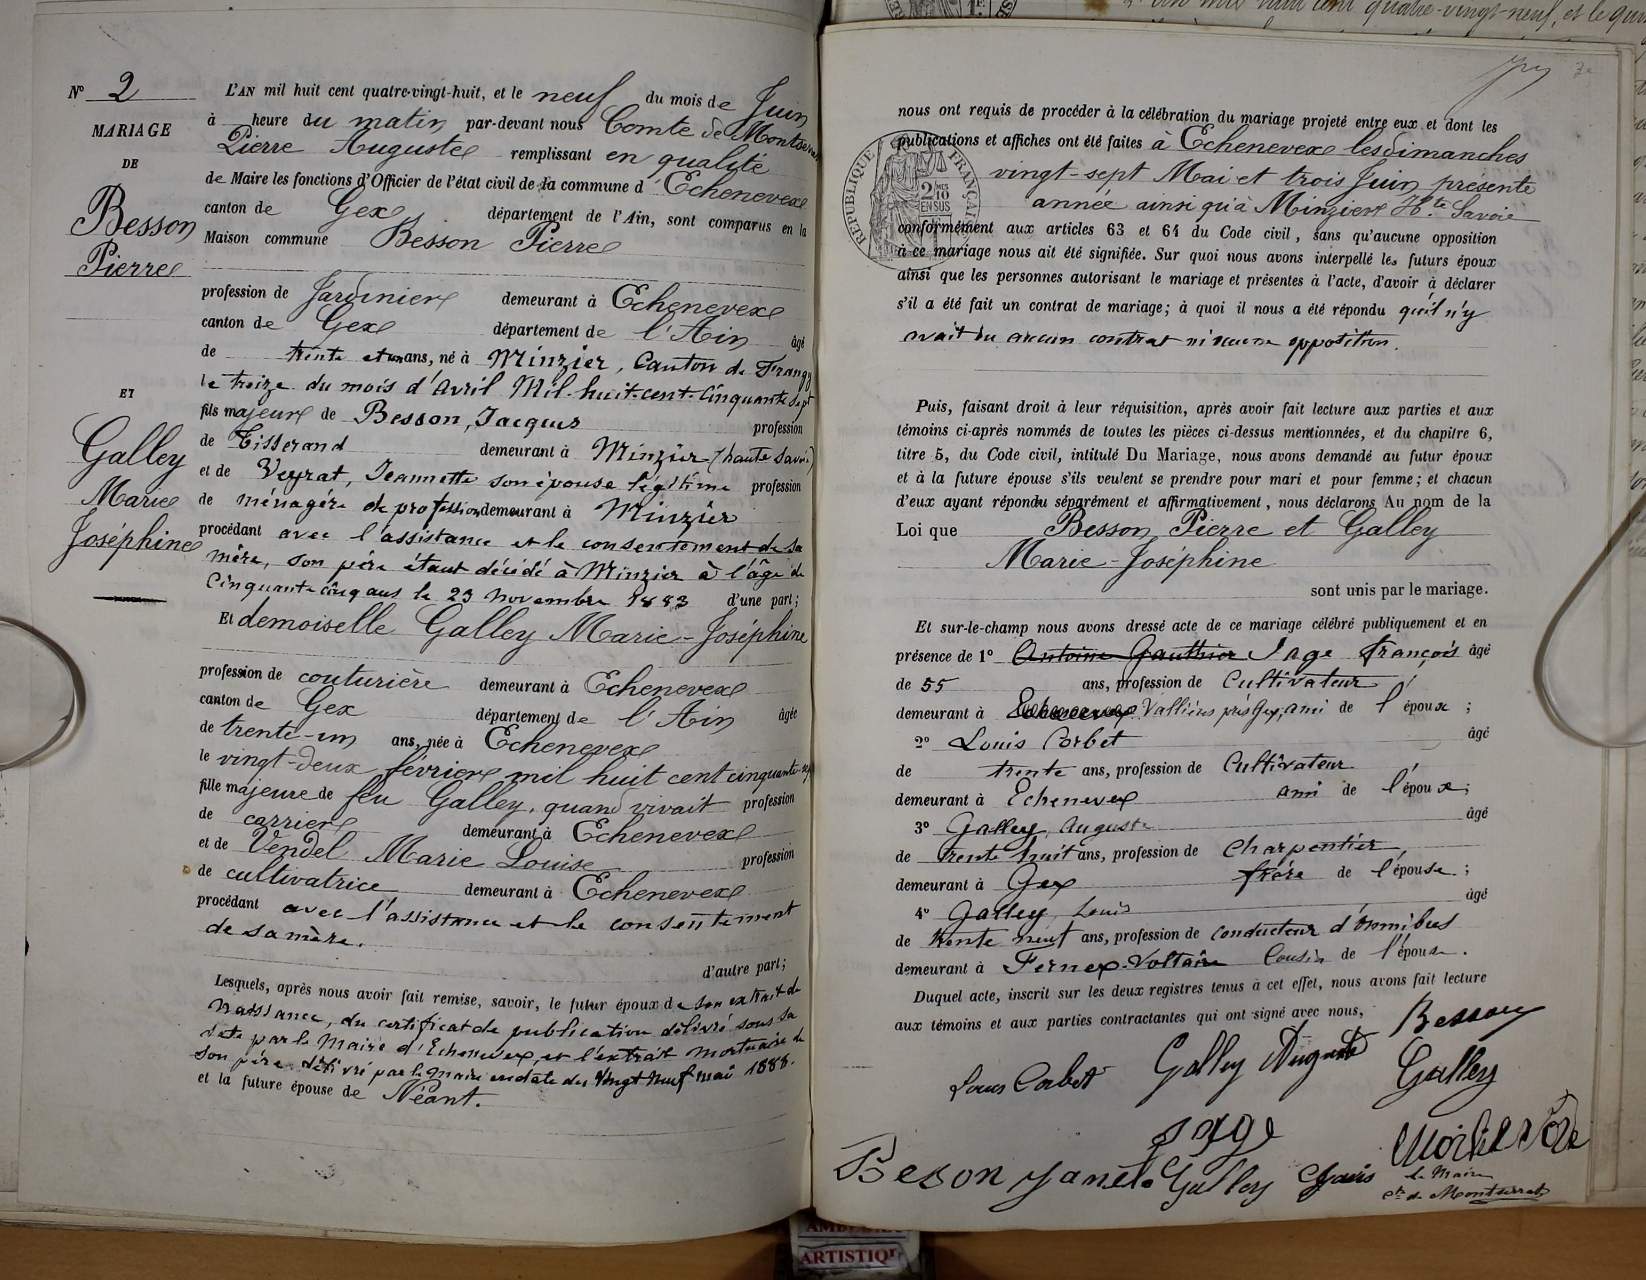 N° 2
MARIAGE
DE
Besson
Pierre
ET
Galley
Marie
Joséphine
L'AN mil huit cent quatre-vingt-huit, et le neuf du mois de Juin
à heure du matin par-devant nous Comte de Montserrat
Pierre Auguste remplissant en qualité
de Maire les fonctions d'Officier de l'état civil de la commune d'Echenevex
canton de Gex département de l'Ain, sont comparus en la
Maison commune Besson Pierre
profession de Jardinier demeurant à Echenevex
canton de Gex département de l'Ain âgé
de trente et un ans, né à Minzier, Canton de Frangy
le treize du mois d'avril Mil-huit-cent-Cinquante sept
fils majeur de Besson, Jacques profession
de Tisserand demeurant à Minzier (haute Savoie)
et de Veyrat, Jeannette son épouse légitime profession
de ménagère de profession demeurant à Minzier
procédant avec l'assistance et le consentement de sa
mère, son père étant décédé à Minzier à l'âge de
Cinquante cinq ans le 23 Novembre 1883 d'une part;
Et demoiselle Galley Marie-Joséphine
profession de couturière demeurant à Echenevex
canton de Gex département de l'Ain âgée
de trente-un ans, née à Echenevex
le vingt-deux février mil huit cent cinquante-sept
fille majeure de feu Galley, quand vivait profession
de carrier demeurant à Echenevex
et de Vendel Marie Louise profession
de cultivatrice demeurant à Echenevex
procédant avec l'assistance et le consentement
de sa mère.
d'autre part;
Lesquels, après nous avoir fait remise, savoir, le futur époux de son extrait de
naissance, du certificat de publication délivré sous sa
date par le Maire d'Echenevex, et l'extrait mortuaire de
son père délivré par le maire en date du Vingt Neuf mai 1888.
et la future épouse de Néant.
nous ont requis de procéder à la célébration du mariage projeté entre eux et dont les
publications et affiches ont été faites à Echenevex les dimanches
vingt-sept Mai et trois Juin présente
année ainsi qu'à Minzier Hte Savoie
conformément aux articles 63 et 64 du Code civil, sans qu'aucune opposition
à ce mariage nous ait été signifiée. Sur quoi nous avons interpellé les futurs époux
ainsi que les personnes autorisant le mariage et présentes à l'acte, d'avoir à déclarer
s'il a été fait un contrat de mariage; à quoi il nous a été répondu qu'il n'y
avait eu aucun contrat ni aucune opposition.
RÉPUBLIQUE FRANÇAISE
2 MES 10
EN SUS
Puis, faisant droit à leur réquisition, après avoir fait lecture aux parties et aux
témoins ci-après nommés de toutes les pièces ci-dessus mentionnées, et du chapitre 6,
titre 5, du Code civil, intitulé Du Mariage, nous avons demandé au futur époux
et à la future épouse s'ils veulent se prendre pour mari et pour femme; et chacun
d'eux ayant répondu séparément et affirmativement, nous déclarons Au nom de la
Loi que Besson Pierre et Galley
Marie-Joséphine
sont unis par le mariage.
Et sur-le-champ nous avons dressé acte de ce mariage célébré publiquement et en
présence de 1° Antoine Gauthier Sage François âgé
de 55 ans, profession de Cultivateur
demeurant à Echenevex près Gex, ami de l'époux;
2° Louis Corbet âgé
de trente ans, profession de Cultivateur
demeurant à Echenevex ami de l'époux;
3° Galley, Auguste âgé
de trente huit ans, profession de Charpentier,
demeurant à Gex frère de l'épouse;
4° Galley, Louis âgé
de trente neuf ans, profession de conducteur d'omnibus
demeurant à Fernex-Voltaire Cousin de l'épouse.
Duquel acte, inscrit sur les deux registres tenus à cet effet, nous avons fait lecture
aux témoins et aux parties contractantes qui ont signé avec nous,
Besson
Louis Corbet Galley Auguste Galley
Sage
Beson Galley Louis
le Maire
Cte de Montserrat
ARTISTIQ